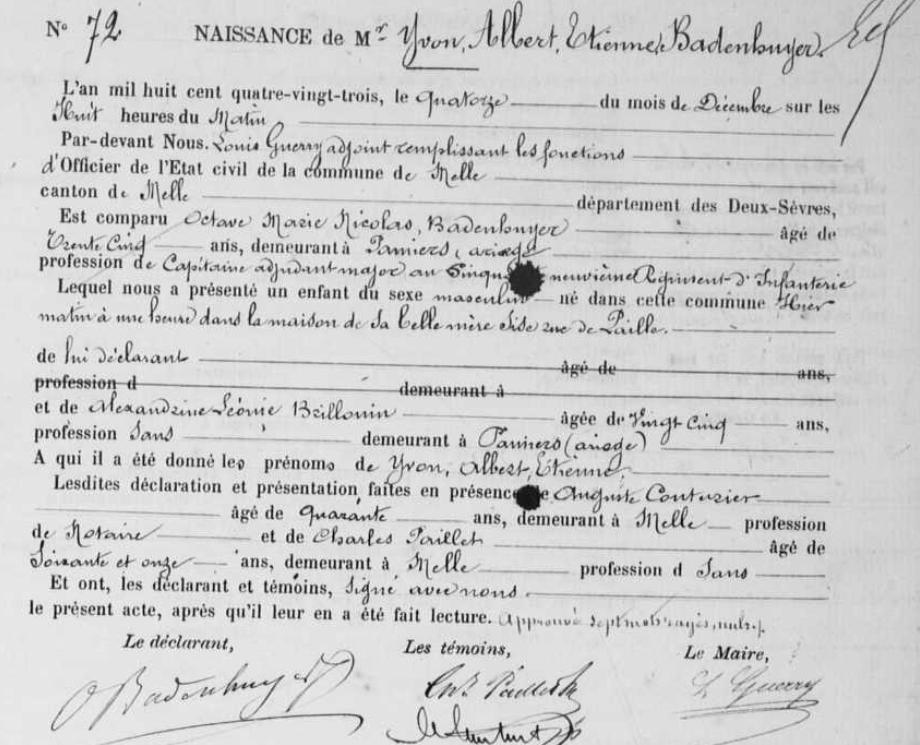 N° 72 NAISSANCE de Mr Yvon, Albert, Etienne, Badenhuyer.
L'an mil huit cent quatre-vingt-trois, le quatorze du mois de Décembre sur les
Huit heures du Matin
Par-devant Nous. Louis Guerry adjoint remplissant les fonctions
d'Officier de l'Etat civil de la commune de Melle
canton de Melle département des Deux-Sèvres,
Est comparu Octave Marie Nicolas, Badenhuyer âgé de
Trente Cinq ans, demeurant à Pamiers, ariège
profession de Capitaine adjudant major au Cinqu neuvième Régiment d'Infanterie
Lequel nous a présenté un enfant du sexe masculin né dans cette commune Hier
matin à une heure dans la maison de Sa belle mère Sise rue de Paille.
de lui déclarant âgé de ans,
profession d demeurant à
et de Alexandrine Léonie Brillouin âgée de Vingt Cinq ans,
profession Sans demeurant à Pamiers (ariège)
A qui il a été donné les prénoms de Yvon, Albert, Etienne
Lesdites déclaration et présentation faites en présence de Auguste Couturier
âgé de quarante ans, demeurant à Melle profession
de Notaire et de Charles Paillet âgé de
Soixante et onze ans, demeurant à Melle profession d Sans
Et ont, les déclarant et témoins, Signé avec nous.
le présent acte, après qu'il leur en a été fait lecture. Approuvé Sept mots rayés, nuls.
Le déclarant, Les témoins, Le Maire,
O Badenhuyer L Guerry